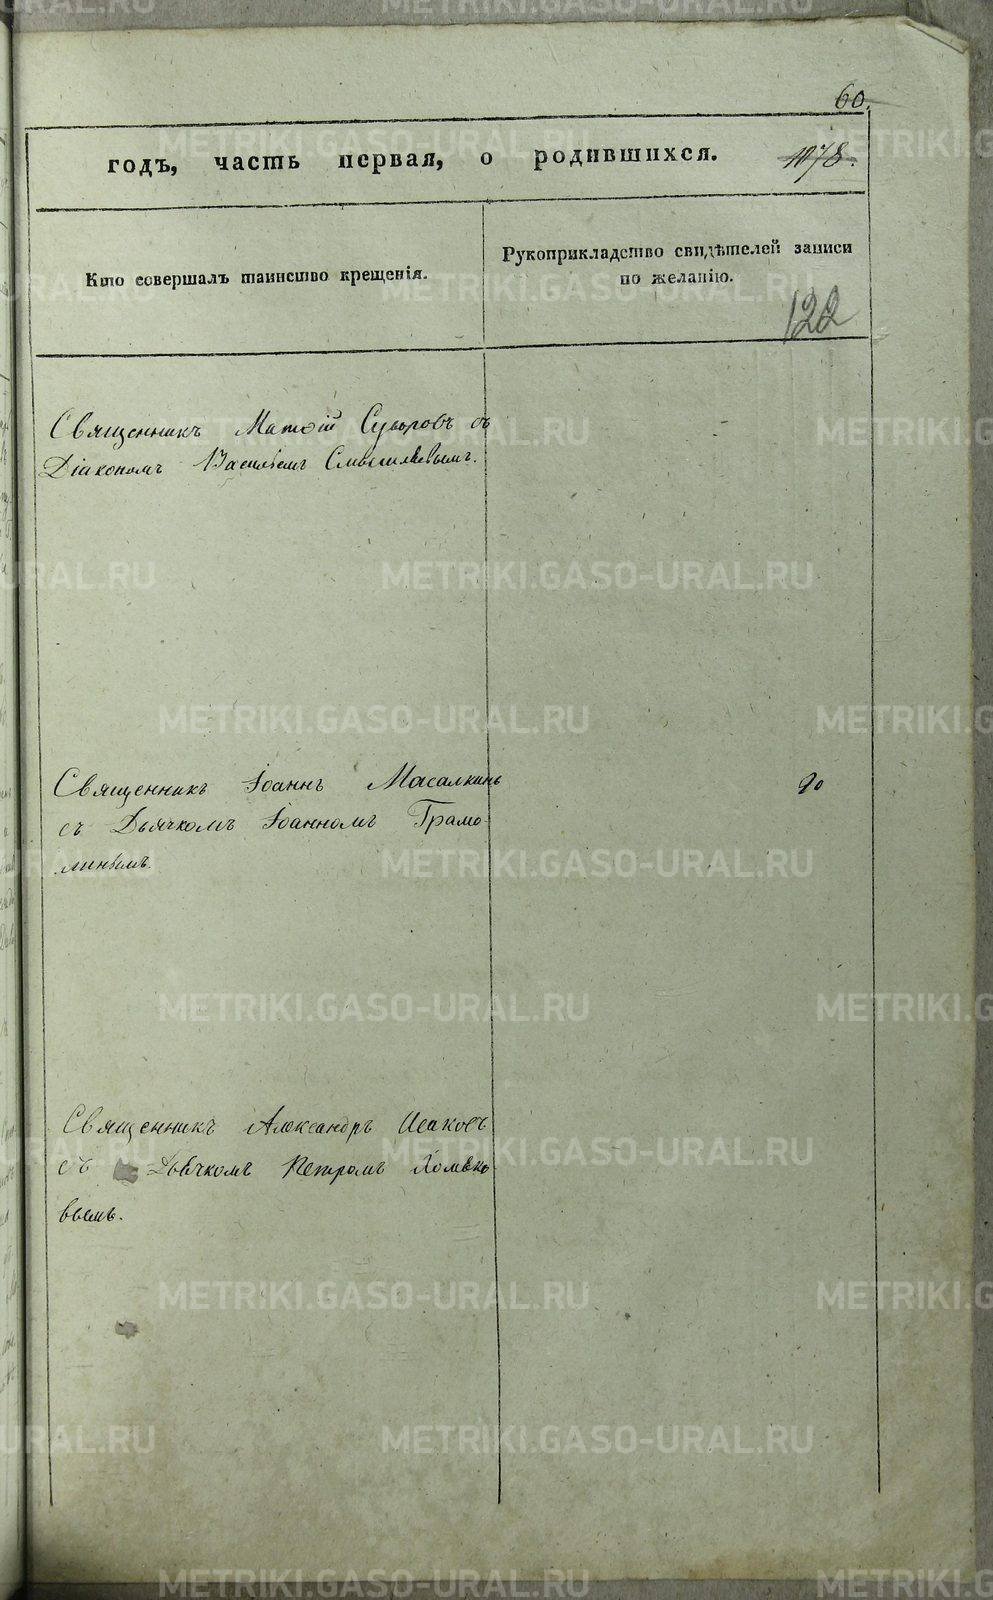 60.
годъ, часть первая, о родившихся.
1078.
Кто совершалъ таинство крещенія.
Рукоприкладство свидѣтелей записи
по желанію.
122
Священникъ Матѳій Суворовъ съ
Діакономъ Василіемъ
Священникъ Іоаннъ Масалкинъ
съ Дьячкомъ Іоанномъ Грамо-
линымъ.
90
Священникъ Александръ Исаковъ
съ Дьячкомъ Петромъ Хомяко-
вымъ.
METRIKI.GASO-URAL.RU